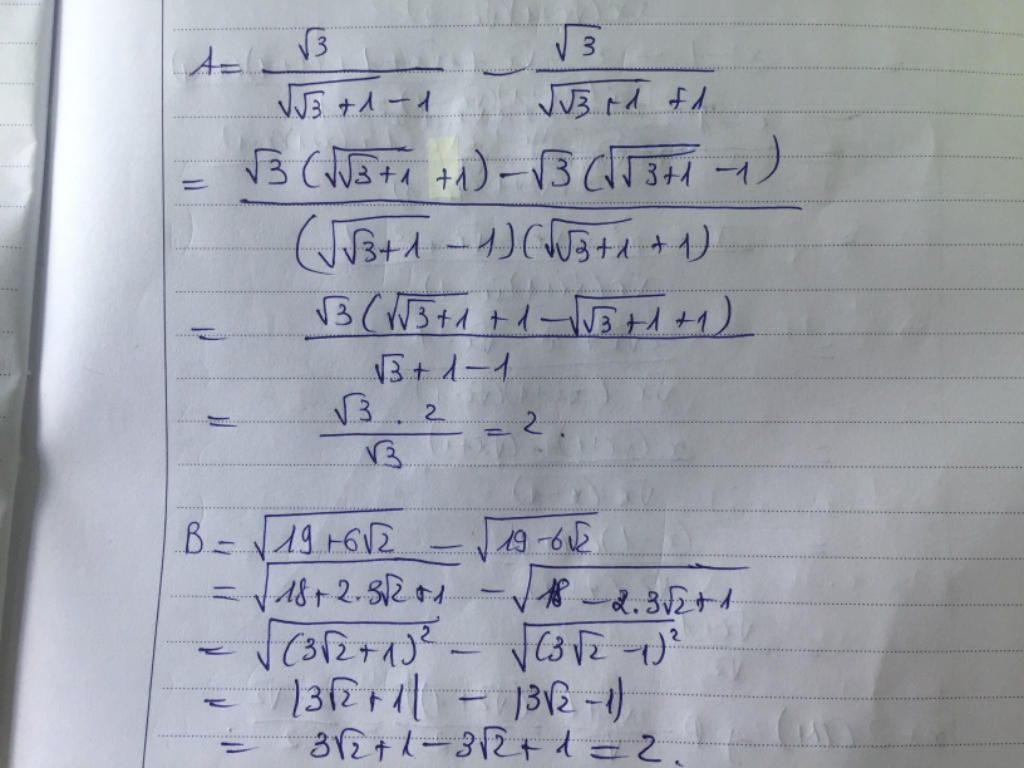 A = \frac{\sqrt{3}}{\sqrt{\sqrt{3}+1}-1} - \frac{\sqrt{3}}{\sqrt{\sqrt{3}+1}+1}
= \frac{\sqrt{3}(\sqrt{\sqrt{3}+1}+1)-\sqrt{3}(\sqrt{\sqrt{3}+1}-1)}{(\sqrt{\sqrt{3}+1}-1)(\sqrt{\sqrt{3}+1}+1)}
= \frac{\sqrt{3}(\sqrt{\sqrt{3}+1}+1-\sqrt{\sqrt{3}+1}+1)}{\sqrt{3}+1-1}
= \frac{\sqrt{3}.2}{\sqrt{3}} = 2.
B = \sqrt{19+6\sqrt{2}} - \sqrt{19-6\sqrt{2}}
= \sqrt{18+2.3\sqrt{2}+1} - \sqrt{18-2.3\sqrt{2}+1}
= \sqrt{(3\sqrt{2}+1)^2} - \sqrt{(3\sqrt{2}-1)^2}
= |3\sqrt{2}+1| - |3\sqrt{2}-1|
= 3\sqrt{2}+1-3\sqrt{2}+1 = 2.